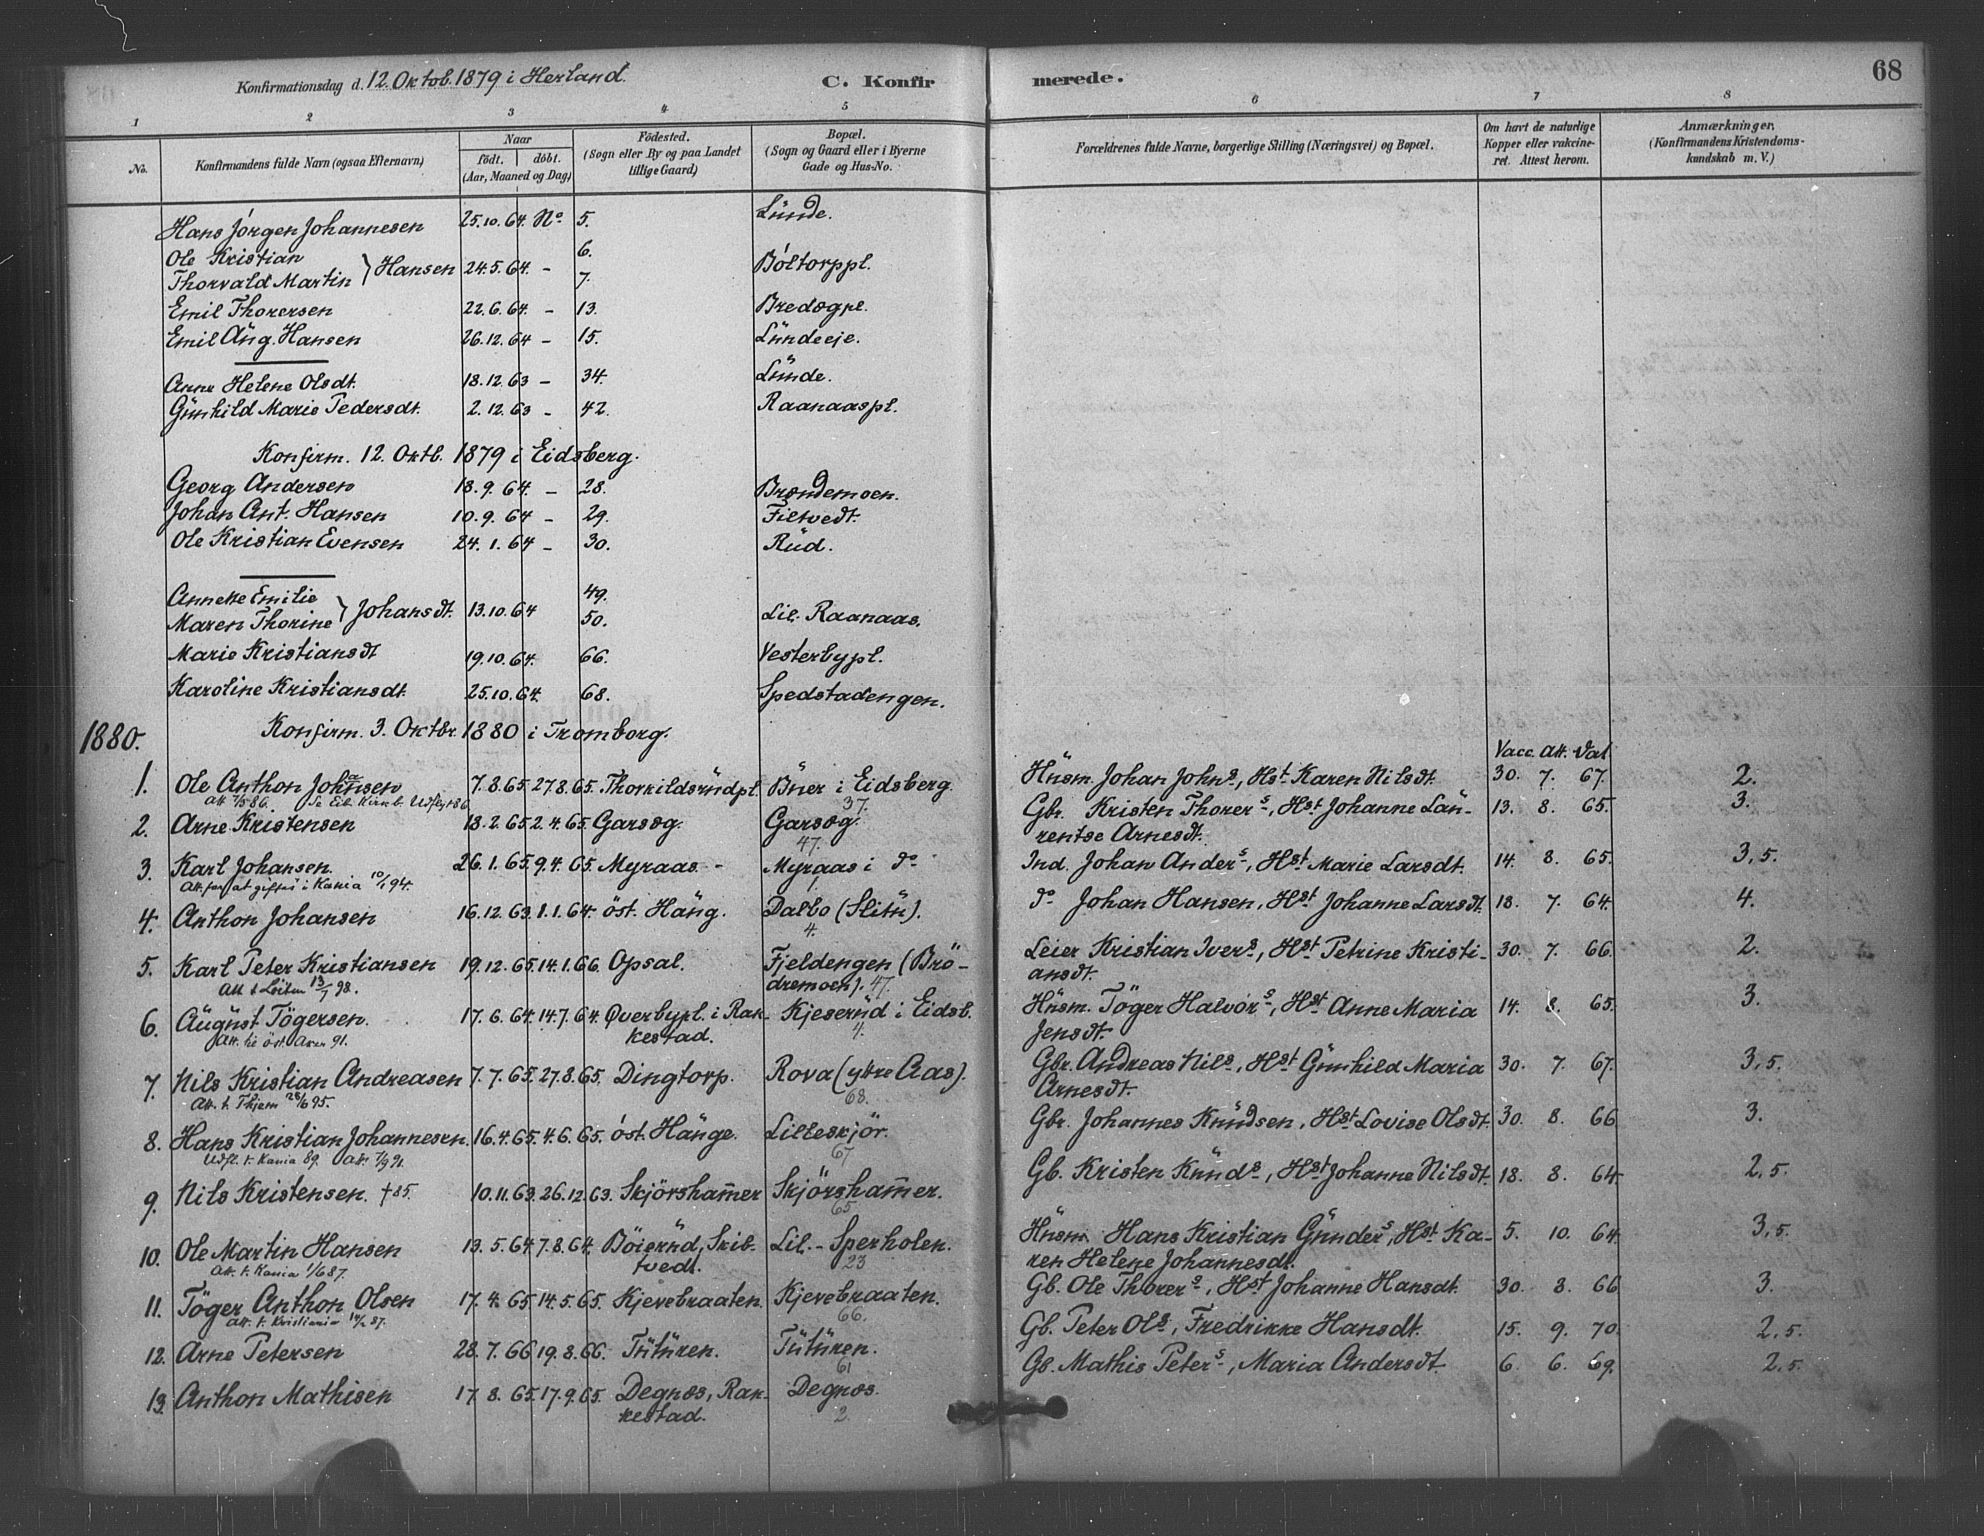 Konfirmationsdag d. 12. Oktob. 1879 i Herland. C. Konfirmerede. 68
1 2 3 4 5 6 7 8
No. Konfirmandens fulde Navn (ogsaa Efternavn) Naar født. døbt. (Aar, Maaned og Dag) Fødested. (Sogn eller By og paa Landet tillige Gaard) Bopæl. (Sogn og Gaard eller i Byerne Gade og Hus-No. Forældrenes fulde Navne, borgerlige Stilling (Næringsvei) og Bopæl. Om havt de naturlige Kopper eller vakcineret. Attest herom. Anmærkninger. (Konfirmandens Kristendomskundskab m. V.)
Hans Jørgen Johannesen 25.10.64. No. 5. Lünde.
Ole Kristian 6.
Thorvald Martin } Hansen 24.5.64. - 7. Böltorppl.
Emil Thorersen 22.6.64. - 13. Bredægpl.
Emil Aüg. Hansen 26.12.64 - 15. Lündeeje.
Anne Helene Olsdt. 18.12.63 - 34. Lünde.
Günhild Marie Pedersdt. 2.12.63 - 42. Raanaaspl.
Konfirm. 12. Oktb. 1879 i Eidsberg.
Georg Andersen 18.9.64. - 28. Brændemoen.
Johan Ant. Hansen 10.9.64 - 29. Filtvedt.
Ole Kristian Evensen 24.1.64 - 30. Rüd.
Annette Emilie 49.
Maren Thorine } Johansdt. 13.10.64 50. Lil. Raanaas.
Marie Kristiansdt 19.10.64. 66. Vesterbypl.
Karoline Kristiansdt. 25.10.64. 68. Spedstadengen.
1880. Konfirm. 3. Oktbr. 1880 i Tromborg.
Vacc. Att. Dat
1. Ole Anthon Johansen 7.8.65. 27.8.65. Thorkildsründpl. Büer i Eidsberg. 37. Hüsm. Johan Johns, Hst Karen Nilsdt. 30. 7. 67. 2.
2. Arne Kristensen 18.2.65. 2.4.65. Garsæg. Garsæg. 47. Gbr. Kristen Thorers, Hst Johanne Laü-
rentse Arnesdt. 13. 8. 65. 3.
3. Karl Johansen. 26.1.65. 9.4.65. Myraas - Myraas i do 1. Ind. Johan Anders, Hst Marie Larsdt. 14. 8. 65. 3,5.
Att. for at giftes i Kania 10/1 94.
4. Anthon Johansen 16.12.63. 1.1.64. öst. Häng. Dalbo (Slitü). 4. do Johan Hansen, Hst Johanne Larsdt. 18. 7. 64. 4.
5. Karl Peter Kristiansen 19.12.65. 14.1.66. Opsal. Fjeldengen (Brö-
dremoen). 47. Leier Kristian Ivers, Hst Petrine Kristi-
ansdt. 30. 7. 66. 2.
6. Aügüst Tögersen. 17.6.64. 14.7.64. Overbypl. i Rak-
kestad. Kjeserüd i Eidsb. 4. Hüsm. Töger Halvors, Hst Anne Maria
Jensdt. 14. 8. 65. 3.
7. Nils Kristian Andreasen 7.7.65. 27.8.65. Dingtorp. Rova (ytre Aas). 68. Gbr. Andreas Nils, Hst Günhild Maria
Arnesdt. 30. 7. 67. 3,5.
8. Hans Kristian Johannesen. 16.4.65. 4.6.65. öst. Hänge. Lilleskjör. 67 Gbr. Johannes Knüdsen, Hst Lovise Olsdt. 30. 8. 66. 3.
Udfl. t. Kania 89. Att. 7/9 91.
9. Nils Kristensen. † 85. 10.11.63. 26.12.63. Skjörshammer Skjörshammer. 65 Gb. Kristen Knüds, Hst Johanne Nilsdt. 18. 8. 64. 2,5.
10. Ole Martin Hansen 13.5.64. 7.8.64. Böierüd, Skib-
tvedt. Lil. - Sperholen. 23 Hüsm. Hans Kristian Günders, Hst Ka-
ren Helene Johannesdt. 5. 10. 64. 3,5.
Att. t. Kania 1/6 87.
11. Töger Anthon Olsen 17.4.65. 14.5.65. Kjevebraaten. Kjevebraaten. 66. Gb. Ole Thorers, Hst Johanne Hansdt. 30. 8. 66 3.
Att. t. Kristiania 14/2 87.
12. Arne Petersen 28.7.66. 19.8.66. Tütüren. Tütüren. 61 Gb. Peter Ols, Fredrikke Hansdt. 15. 9. 70. 2,5.
13. Anthon Mathisen 17.8.65. 17.9.65. Degnæs, Rak-
kestad. Degnæs. 2. Gb. Mathis Peters, Maria Andersdt 6. 6. 69. 2,5.